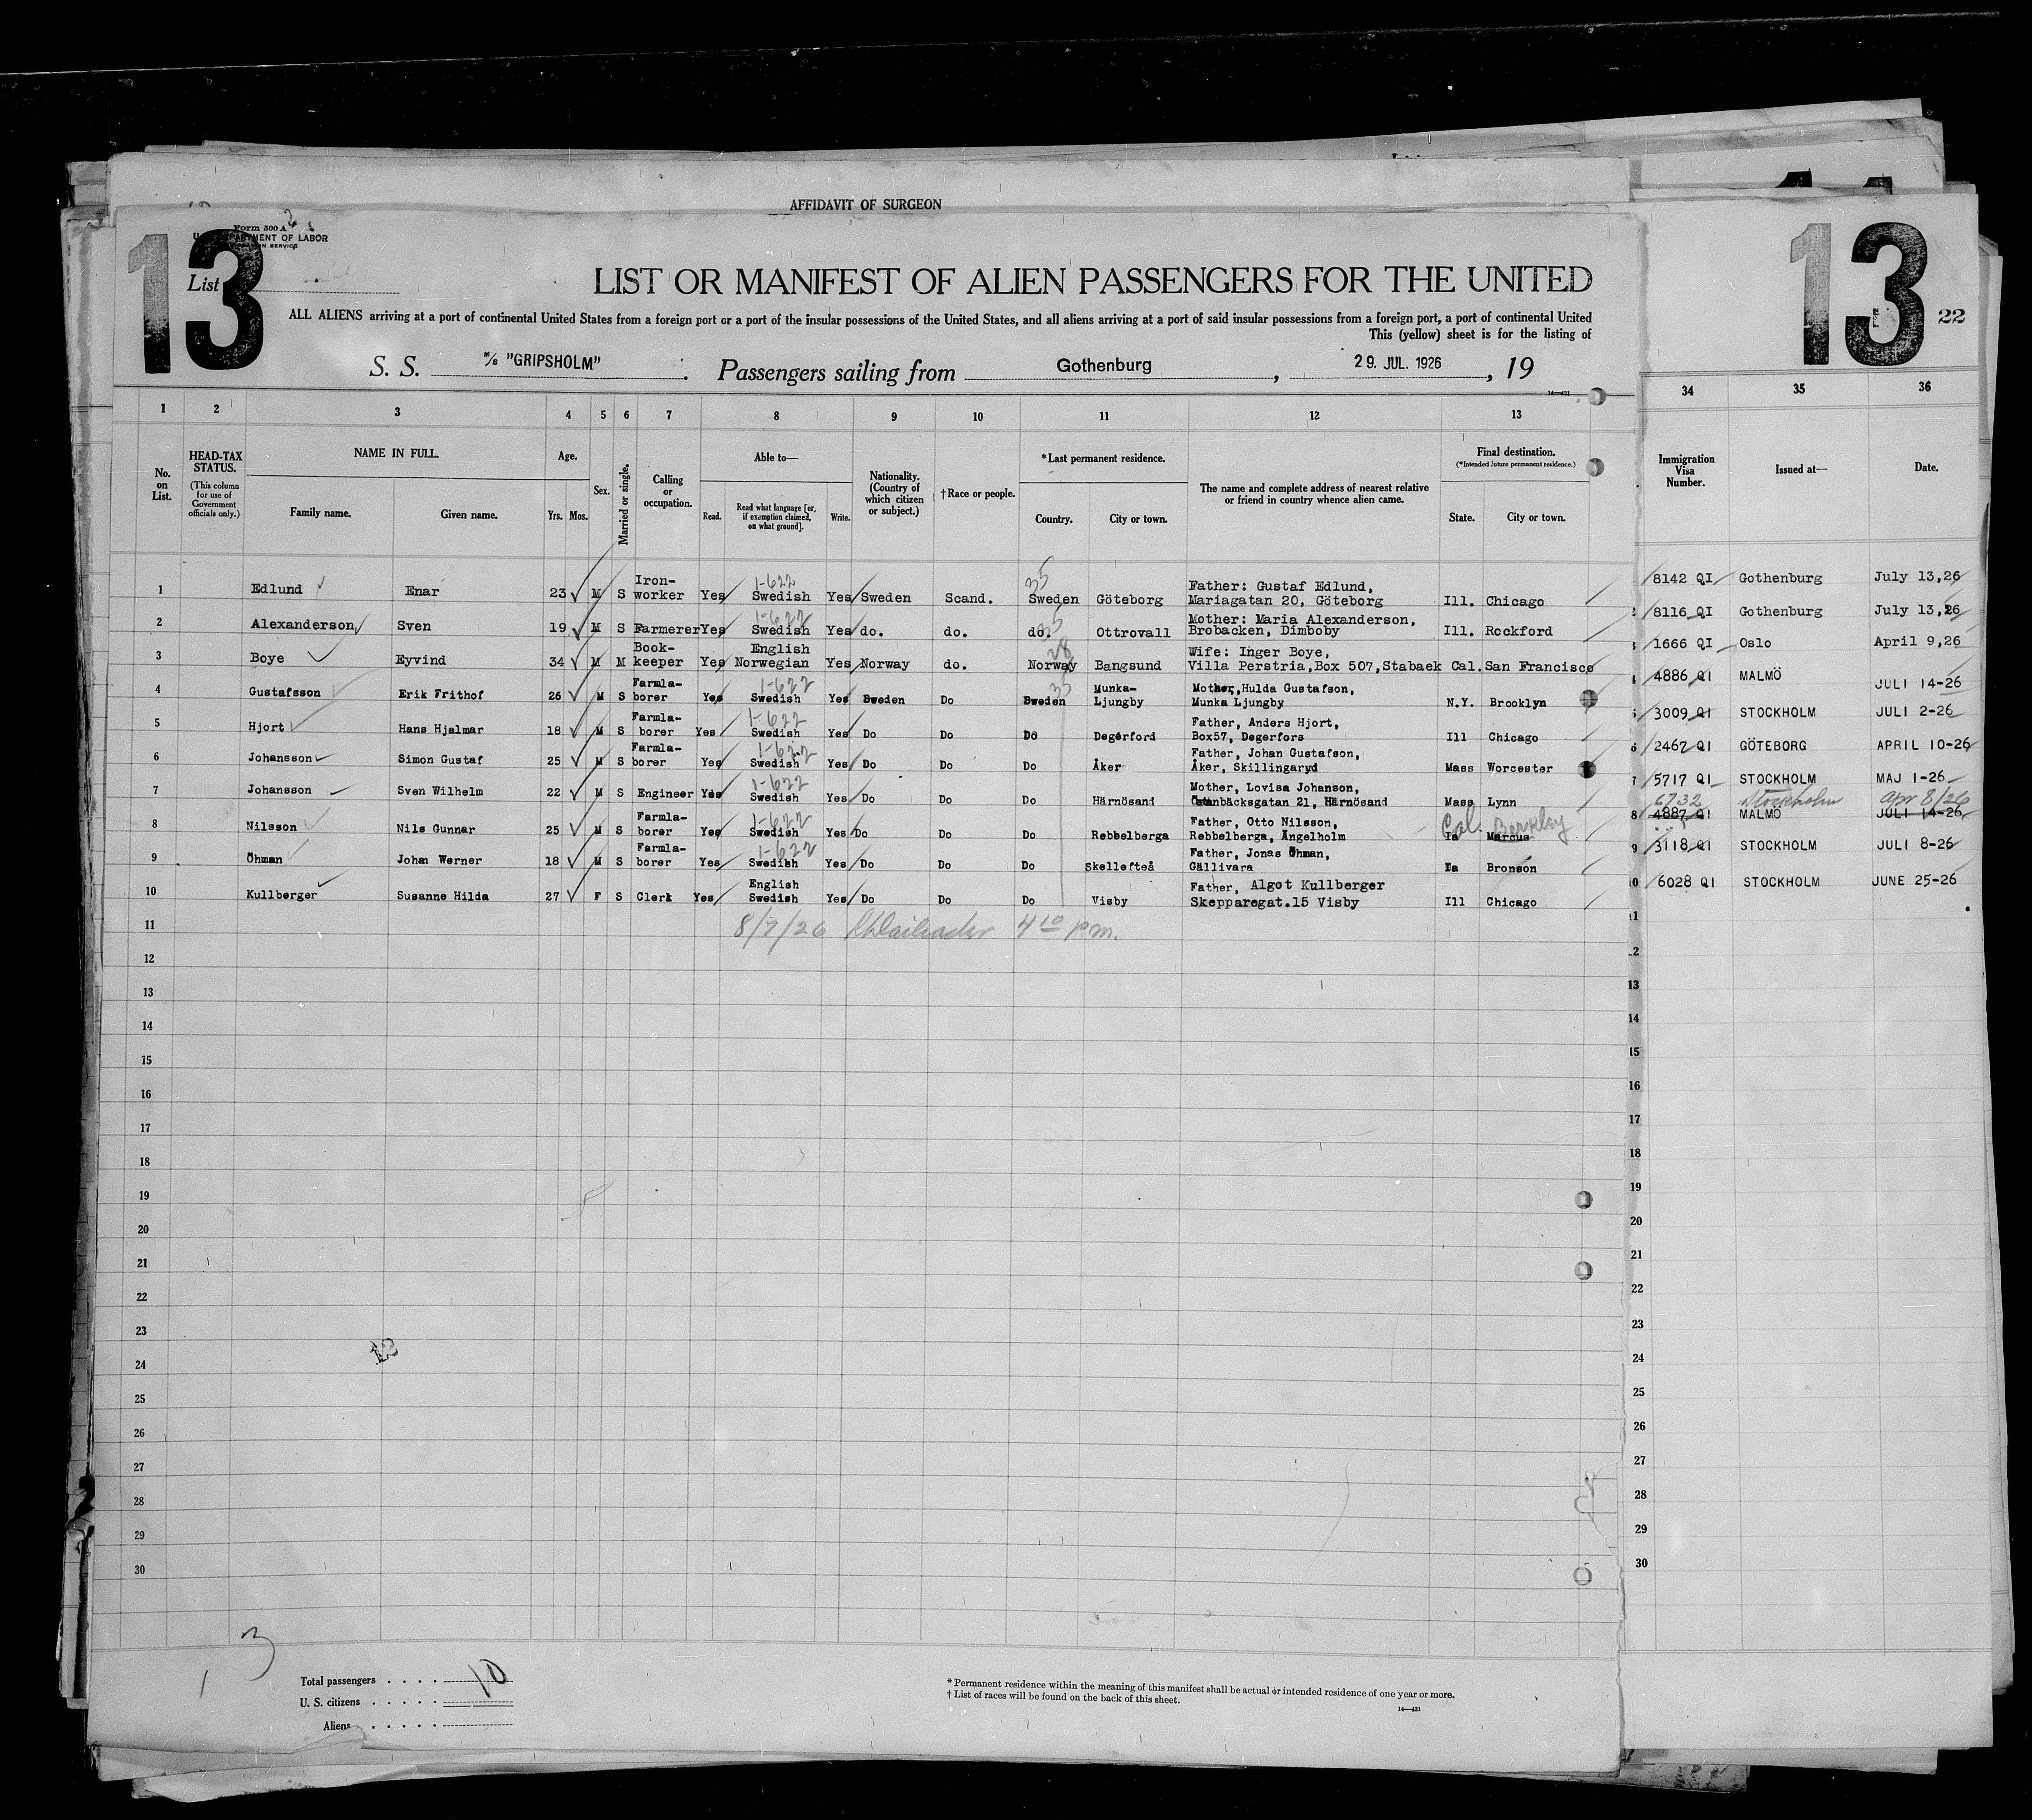 AFFIDAVIT OF SURGEON
13
Form 500 A
U. S. DEPARTMENT OF LABOR
List
LIST OR MANIFEST OF ALIEN PASSENGERS FOR THE UNITED
ALL ALIENS arriving at a port of continental United States from a foreign port or a port of the insular possessions of the United States, and all aliens arriving at a port of said insular possessions from a foreign port, a port of continental United
This (yellow) sheet is for the listing of
S. S. M/S "GRIPSHOLM" Passengers sailing from Gothenburg, 29. JUL. 1926, 19
14—431
13
22
1 2 3 4 5 6 7 8 9 10 11 12 13 34 35 36
No. on List.
HEAD-TAX STATUS.
(This column for use of Government officials only.)
NAME IN FULL.
Family name. Given name.
Age.
Yrs. Mos.
Sex.
Married or single.
Calling or occupation.
Able to—
Read. Read what language [or, if exemption claimed, on what ground]. Write.
Nationality. (Country of which citizen or subject.)
†Race or people.
*Last permanent residence.
Country. City or town.
The name and complete address of nearest relative or friend in country whence alien came.
Final destination.
(*Intended future permanent residence.)
State. City or town.
Immigration Visa Number.
Issued at—
Date.
1 Edlund Enar 23 M S Iron-worker Yes 1-622 Swedish Yes Sweden Scand. 35 Sweden Göteborg Father: Gustaf Edlund, Mariagatan 20, Göteborg Ill. Chicago 8142 QI Gothenburg July 13,26
2 Alexanderson Sven 19 M S Farmerer Yes 1-622 Swedish Yes do. do. do. 35 Ottrovall Mother: Maria Alexanderson, Brobacken, Dimboby Ill. Rockford 8116 QI Gothenburg July 13,26
3 Boye Eyvind 34 M M Book-keeper Yes English Norwegian Yes Norway do. 28 Norway Bangsund Wife: Inger Boye, Villa Perstria,Box 507,Stabaek Cal. San Francisco 1666 QI Oslo April 9,26
4 Gustafsson Erik Frithof 26 M S Farmla-borer Yes 1-622 Swedish Yes Sweden Do 35 Sweden Munka-Ljungby Mother,Hulda Gustafson, Munka Ljungby N.Y. Brooklyn 4886 QI MALMÖ JULI 14-26
5 Hjort Hans Hjalmar 18 M S Farmla-borer Yes 1-622 Swedish Yes Do Do Do Degerford Father, Anders Hjort, Box57, Degerfors Ill Chicago 3009 QI STOCKHOLM JULI 2-26
6 Johansson Simon Gustaf 25 M S Farmla-borer Yes 1-622 Swedish Yes Do Do Do Åker Father, Johan Gustafson, Åker, Skillingaryd Mass Worcester 2467 QI GÖTEBORG APRIL 10-26
7 Johansson Sven Wilhelm 22 M S Engineer Yes 1-622 Swedish Yes Do Do Do Härnösand Mother, Lovisa Johanson, Östanbäcksgatan 21, Härnösand Mass Lynn 5717 QI STOCKHOLM MAJ 1-26
6732 Stockholm Apr 8/26
8 Nilsson Nils Gunnar 25 M S Farmla-borer Yes 1-622 Swedish Yes Do Do Do Rebbelberga Father, Otto Nilsson, Rebbelberga, Ängelholm Cal. Berkley Ia Marcus 4887 QI MALMÖ JULI 14-26
9 Öhman Johan Werner 18 M S Farmla-borer Yes 1-622 Swedish Yes Do Do Do Skellefteå Father, Jonas Öhman, Gällivara Ia Bronson 3118 QI STOCKHOLM JULI 8-26
10 Kullberger Susanne Hilda 27 F S Clerk Yes English Swedish Yes Do Do Do Visby Father, Algot Kullberger Skepparegat.15 Visby Ill Chicago 6028 QI STOCKHOLM JUNE 25-26
11 8/7/26 4 10 p.m. 11
12 12
13 13
14 14
15 15
16 16
17 17
18 18
19 19
20 20
21 21
22 22
23 23
24 24
25 25
26 26
27 27
28 28
29 29
30 30
13
Total passengers 10
U. S. citizens
Aliens
* Permanent residence within the meaning of this manifest shall be actual or intended residence of one year or more.
† List of races will be found on the back of this sheet.
14—431